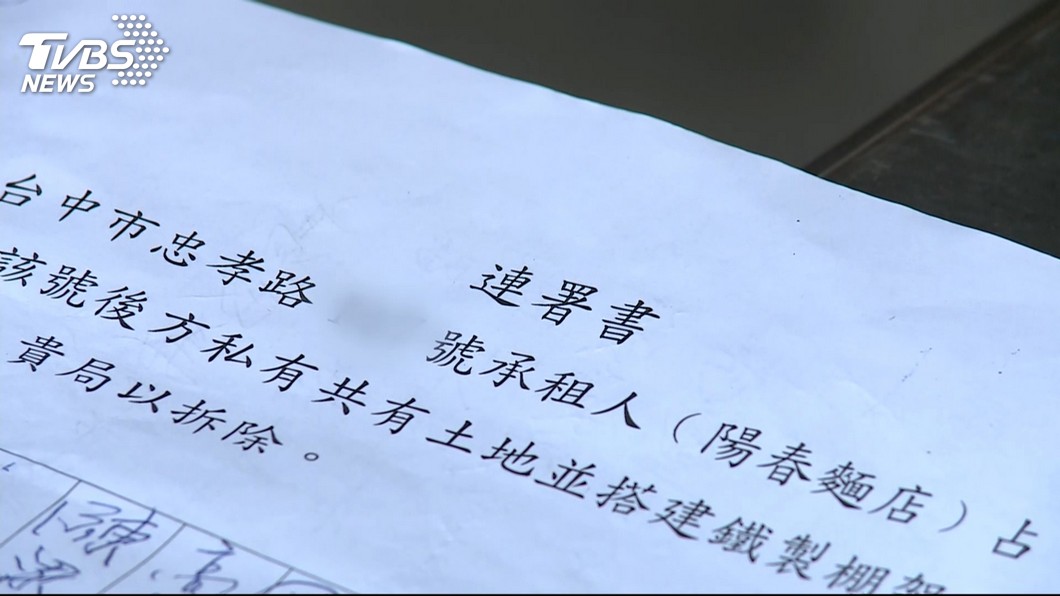 TVBS
NEWS
連署書
台中市忠孝路 號承租人（陽春麵店）占
該號後方私有共有土地並搭建鐵製棚架
貴局以拆除。